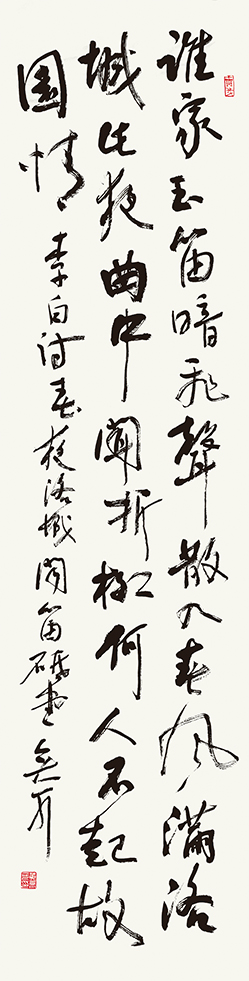 誰家玉笛暗飛聲散入春風滿洛
城此夜曲中聞折柳何人不起故
園情李白詩春夜洛城聞笛